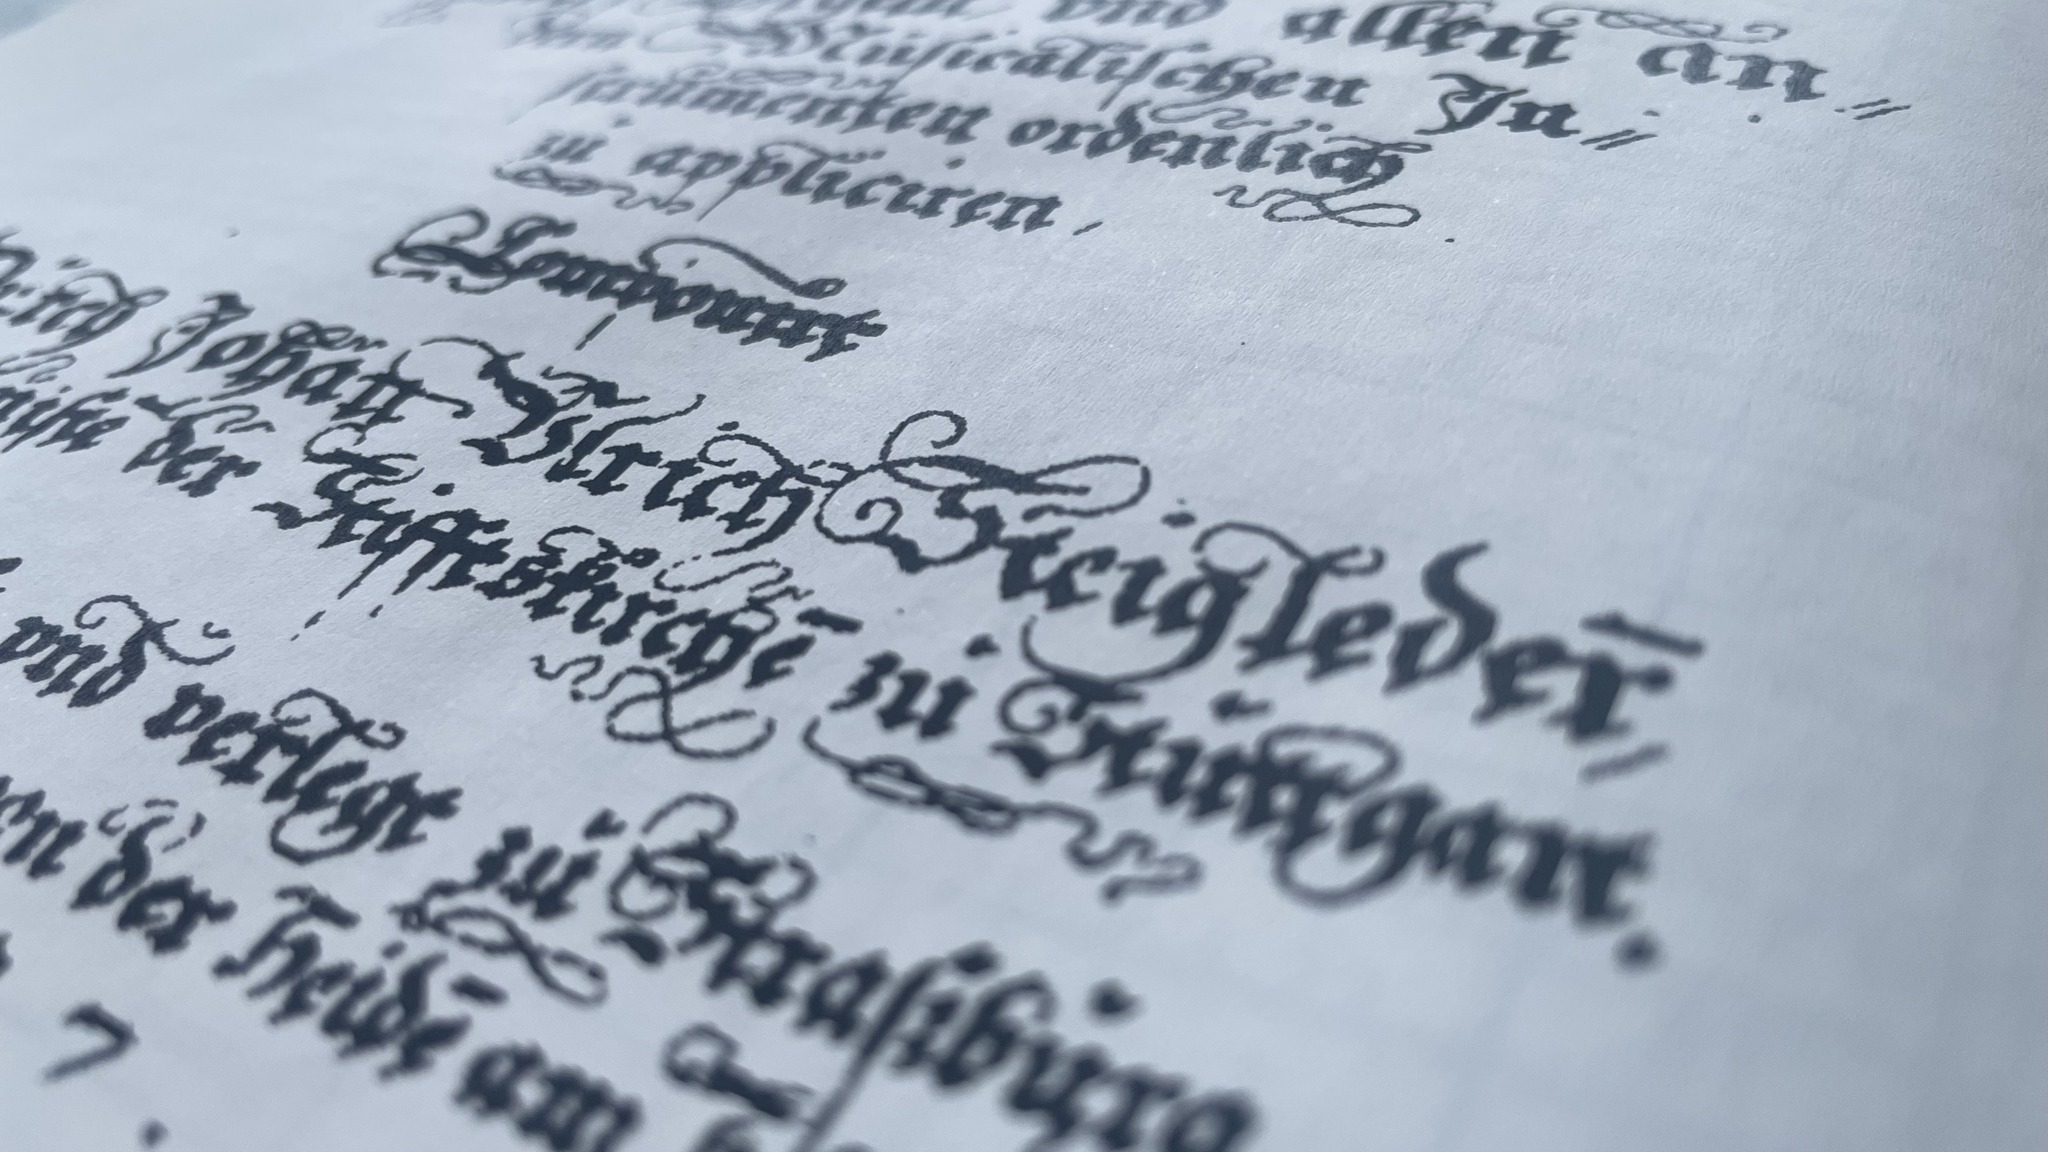 vnd allen an //
Musicalischen In //
strumenten ordenlich
zu appliciren,
Componirt
Johan Vlrich Steigleder /
der Stiftskirchē zu Stutgart.
vnd verlegt zu Strasburg
der Heidē am